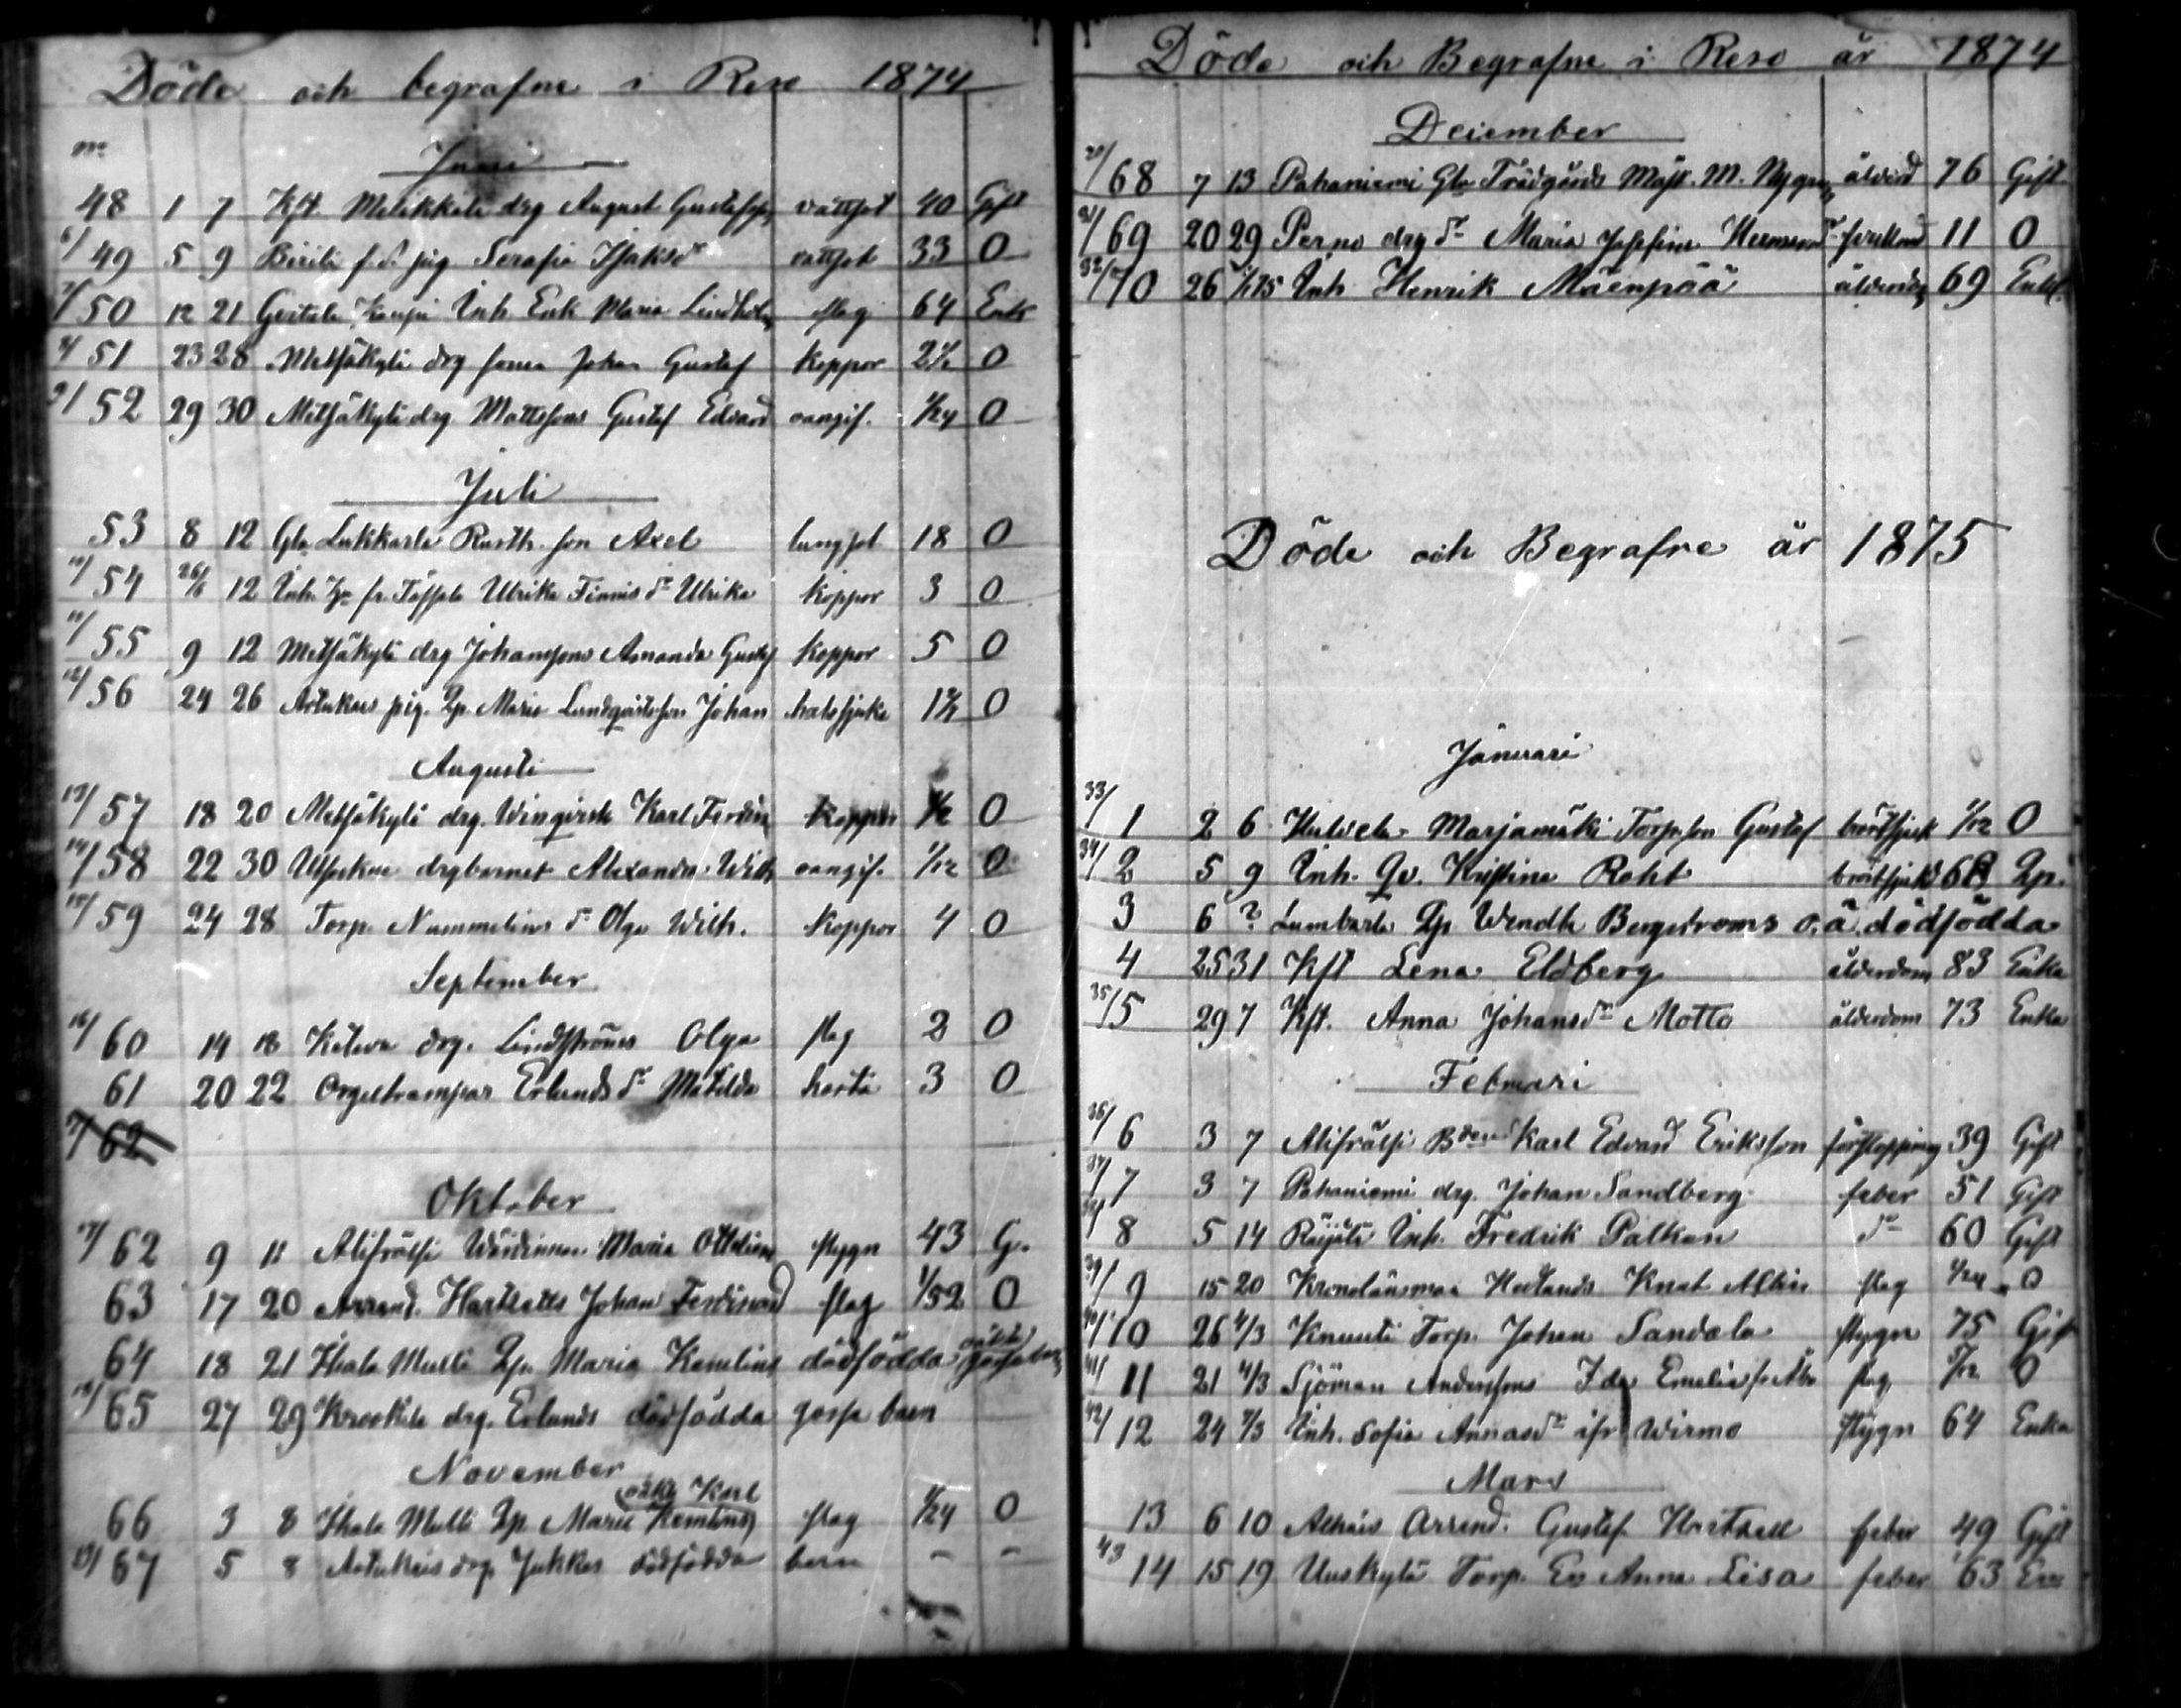 Döde och begrafne i Reso 1874
nr
Juni
48 1 7 Kft Melikkala drg August Gustafss. vattsot 40 Gift
6/ 49 5 9 f.d. pig Serafia Isaksdr vattsot 33 0
7/ 50 12 21 Inh. Enk Maria Lindholm slag 64 Enk
8/ 51 23 28 Metsäkylä drg sonen Johan Gustaf koppor 2½ 0
9/ 52 29 30 Metsäkylä drg Mattssons Gustaf Edvard oangif. 1/24 0
Juli
53 8 12 Gla Lukkarla Rusth. son Axel lungsot 18 0
10/ 54 26/6 12 Inh. fr. Ulrika Finnis dr Ulrika koppor 3 0
11/ 55 9 12 Metsäkylä drg Johanssons Amanda Gustaf koppor 5 0
12/ 56 24 26 Artukais pig. Qp. Maria Lundqvists son Johan halssjuka 0
Augusti
13/ 57 18 20 Metsäkylä drg. Winqvists Karl Ferdin koppor ½ 0
14/ 58 22 30 drgbarnet Alexander Wilh oangif. 1/12 0
15/ 59 24 28 Torp. Nummelins dr Olga Wilh. koppor 4 0
September
16/ 60 14 18 drg. Lindströms Olga slag 2 0
61 20 22 Orgeltrampar Erlunds dr Matilda hosta 3 0
17/ 62
Oktober
17/ 62 9 11 Alifrälsi Wärdinnan Maria stygn 43 G.
63 17 20 Arrend. Hartzells Johan Ferdinand slag 1/52 0
64 18 21 Ihala Mulli Qp. Maria Kemlins dödfödda
18/ 65 27 29 Krookila drg. Erlunds dödfödda gosse barn
November
66 3 8 Ihala Mulli Qp Maria Kemlins oäkt Karl slag 1/24 0
19/ 67 5 8 Artukais drg. Jukkas dödfödda barn - -
Döde och Begrafne i Reso år 1874
December
20/ 68 7 13 Pahaniemi Gla Trädgårds Mäst. M. Nygren ålderd 76 Gift
31/ 69 20 29 Perno drg dr Maria Josefina 11 0
32/ 70 26 1/1 75 Inh Henrik Mäenpää ålderdom 69 Enkl.
Döde och Begrafne år 1875
Januari
33/ 1 2 6 Marjamäki Torp. son Gustaf bröstsjuk 1/12 0
34/ 2 5 9 Inh. Qv. Kristina Roht bröstsjuk Qp.
3 6 ? Lumbarla Qp Wendla Bergströms o.ä. dödfödda
4 25 31 Kft Lena Eldberg ålderdom 83 Enka
35/ 5 29 7 Kft. Anna Johansdr Motto ålderdom 73 Enka
Februari
36/ 6 3 7 Alifrälsi Bden Karl Edvard Eriksson förstoppning 39 Gift
37/ 7 3 7 Pahaniemi drg. Johan Sandberg feber 51 Gift
38/ 8 5 14 Inh. Fredrik Palkan do 60 Gift
39/ 9 15 20 Kronolänsman Knut slag 1/24 0
40/ 10 26 4/3 Knuuti Torp. Johan Sandala stygn 75 Gift
41/ 11 21 4/3 Sjöman Anderssons Ida Emelia fr Åbo slag 5/12 0
42/ 12 24 7/3 Inh. Sofia Annasdr ifr Wirmo stygn 64 Enka
Mars
13 6 10 Arrend. Gustaf Hartzell feber 49 Gift
43 14 15 19 Uuskylä Torp. Ev Anna Lisa feber 63